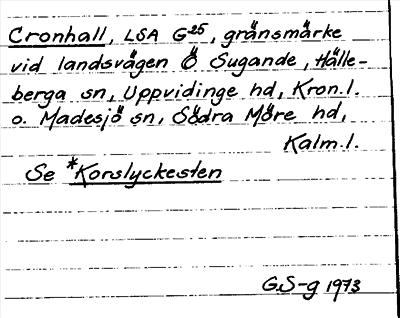 Cronhall, LSA G25, gränsmärke
vid landsvägen Ö Sugande, Hälle-
berga sn, Uppvidinge hd, Kron.l.
o. Madesjö sn, Södra Möre hd,
Kalm.l.
Se *Korslyckesten
G.S-g 1973